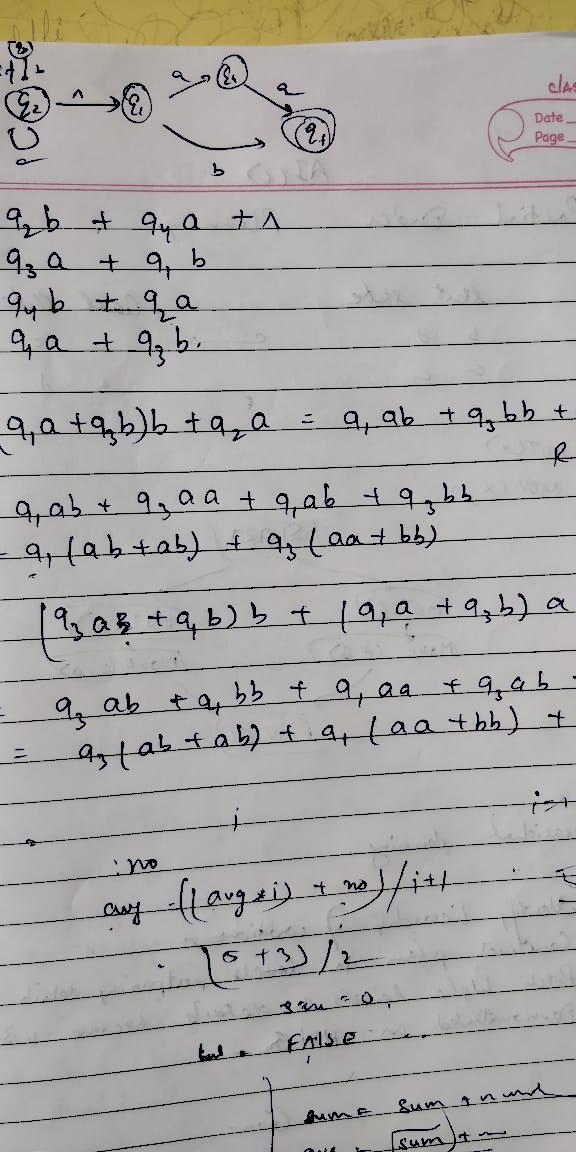 q2 ^ q1 a q4 a qf
a b
CLAS
Date
Page
q2 b + q4 a + ^
q3 a + q1 b
q4 b + q2 a
q1 a + q3 b.
(q1 a + q3 b) b + q2 a = q1 ab + q3 bb +
R
q1 ab + q3 aa + q1 ab + q3 bb
q1 (ab + ab) + q3 (aa + bb)
(q3 a + q1 b) b + (q1 a + q3 b) a
= q3 ab + q1 bb + q1 aa + q3 ab
= q3 (ab + ab) + q1 (aa + bb) +
i
: no
avg = ((avg * i) + no) / i+1
(5 + 3) / 2
= 0,
= FALSE
sum = sum +
sum +